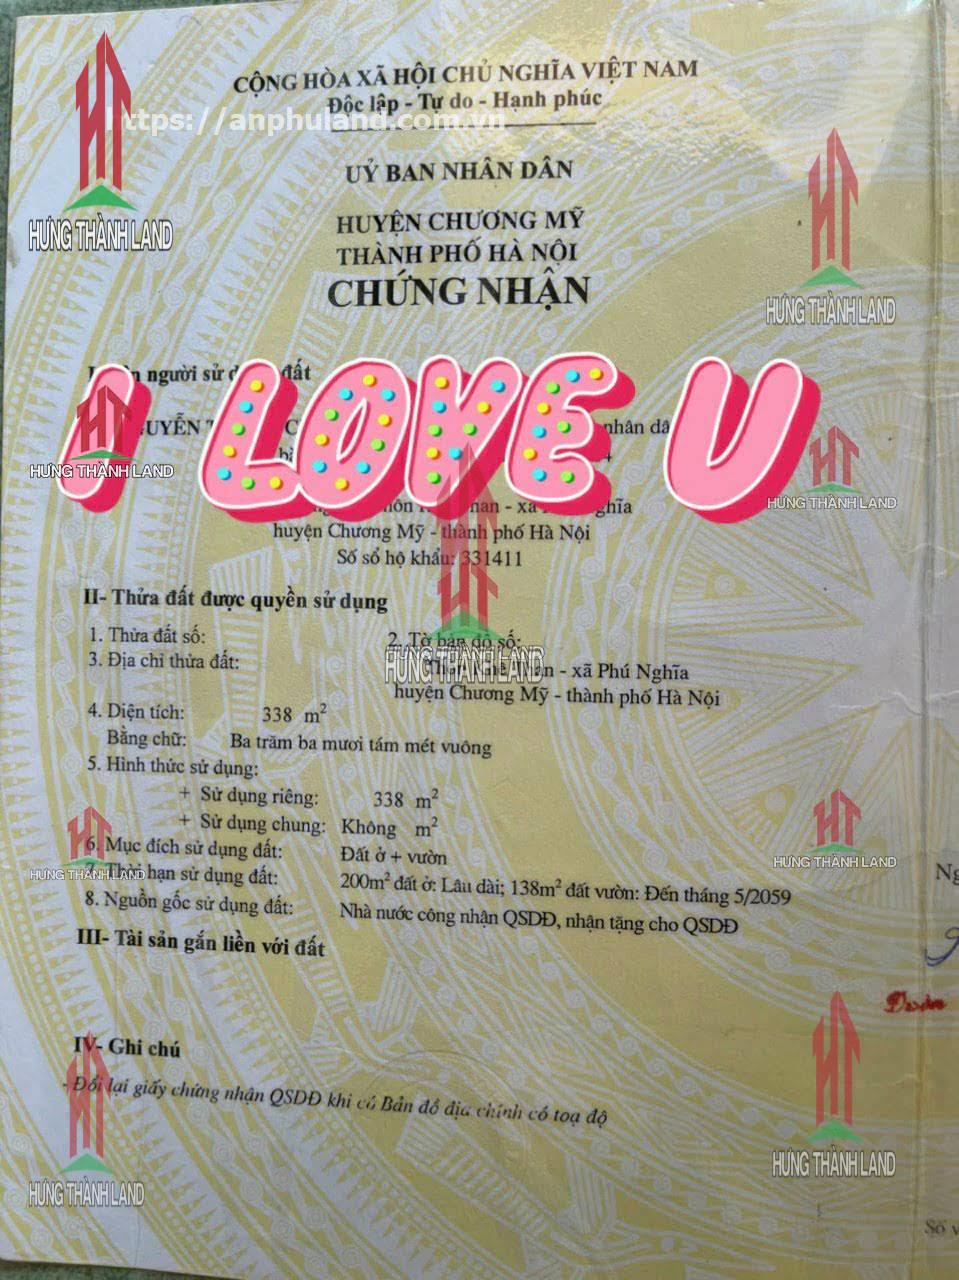 CỘNG HÒA XÃ HỘI CHỦ NGHĨA VIỆT NAM
Độc lập - Tự do - Hạnh phúc
https://anphuland.com.vn
UỶ BAN NHÂN DÂN
HUYỆN CHƯƠNG MỸ
THÀNH PHỐ HÀ NỘI
CHỨNG NHẬN
HƯNG THÀNH LAND
HƯNG THÀNH LAND
người sử đất
I LOVE U
nhân
HƯNG THÀNH LAND
HƯNG THÀNH LAND
- xã
huyện Chương Mỹ - thành phố Hà Nội
Số sổ hộ khẩu: 331411
II- Thửa đất được quyền sử dụng
1. Thửa đất số: 2. Tờ bản đồ số:
HƯNG THÀNH LAND
3. Địa chỉ thửa đất: - xã Phú Nghĩa
huyện Chương Mỹ - thành phố Hà Nội
4. Diện tích: 338 m²
Bằng chữ: Ba trăm ba mươi tám mét vuông
5. Hình thức sử dụng:
+ Sử dụng riêng: 338 m²
+ Sử dụng chung: Không m²
6. Mục đích sử dụng đất: Đất ở + vườn
HƯNG THÀNH LAND
HƯNG THÀNH LAND
7. Thời hạn sử dụng đất: 200m² đất ở: Lâu dài; 138m² đất vườn: Đến tháng 5/2059
8. Nguồn gốc sử dụng đất: Nhà nước công nhận QSDĐ, nhận tặng cho QSDĐ
III- Tài sản gắn liền với đất
Đoàn
IV- Ghi chú
- Đổi lại giấy chứng nhận QSDĐ khi có Bản đồ địa chính có toạ độ
HƯNG THÀNH LAND
HƯNG THÀNH LAND
Số